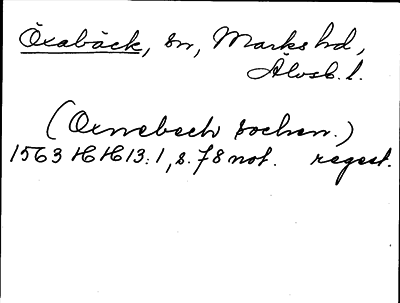 Öxabäck, sn, Marks hd,
Älvsb. l.
(Oxnebech sochen.)
1563 HH 13:1, s. 78 not. regest.